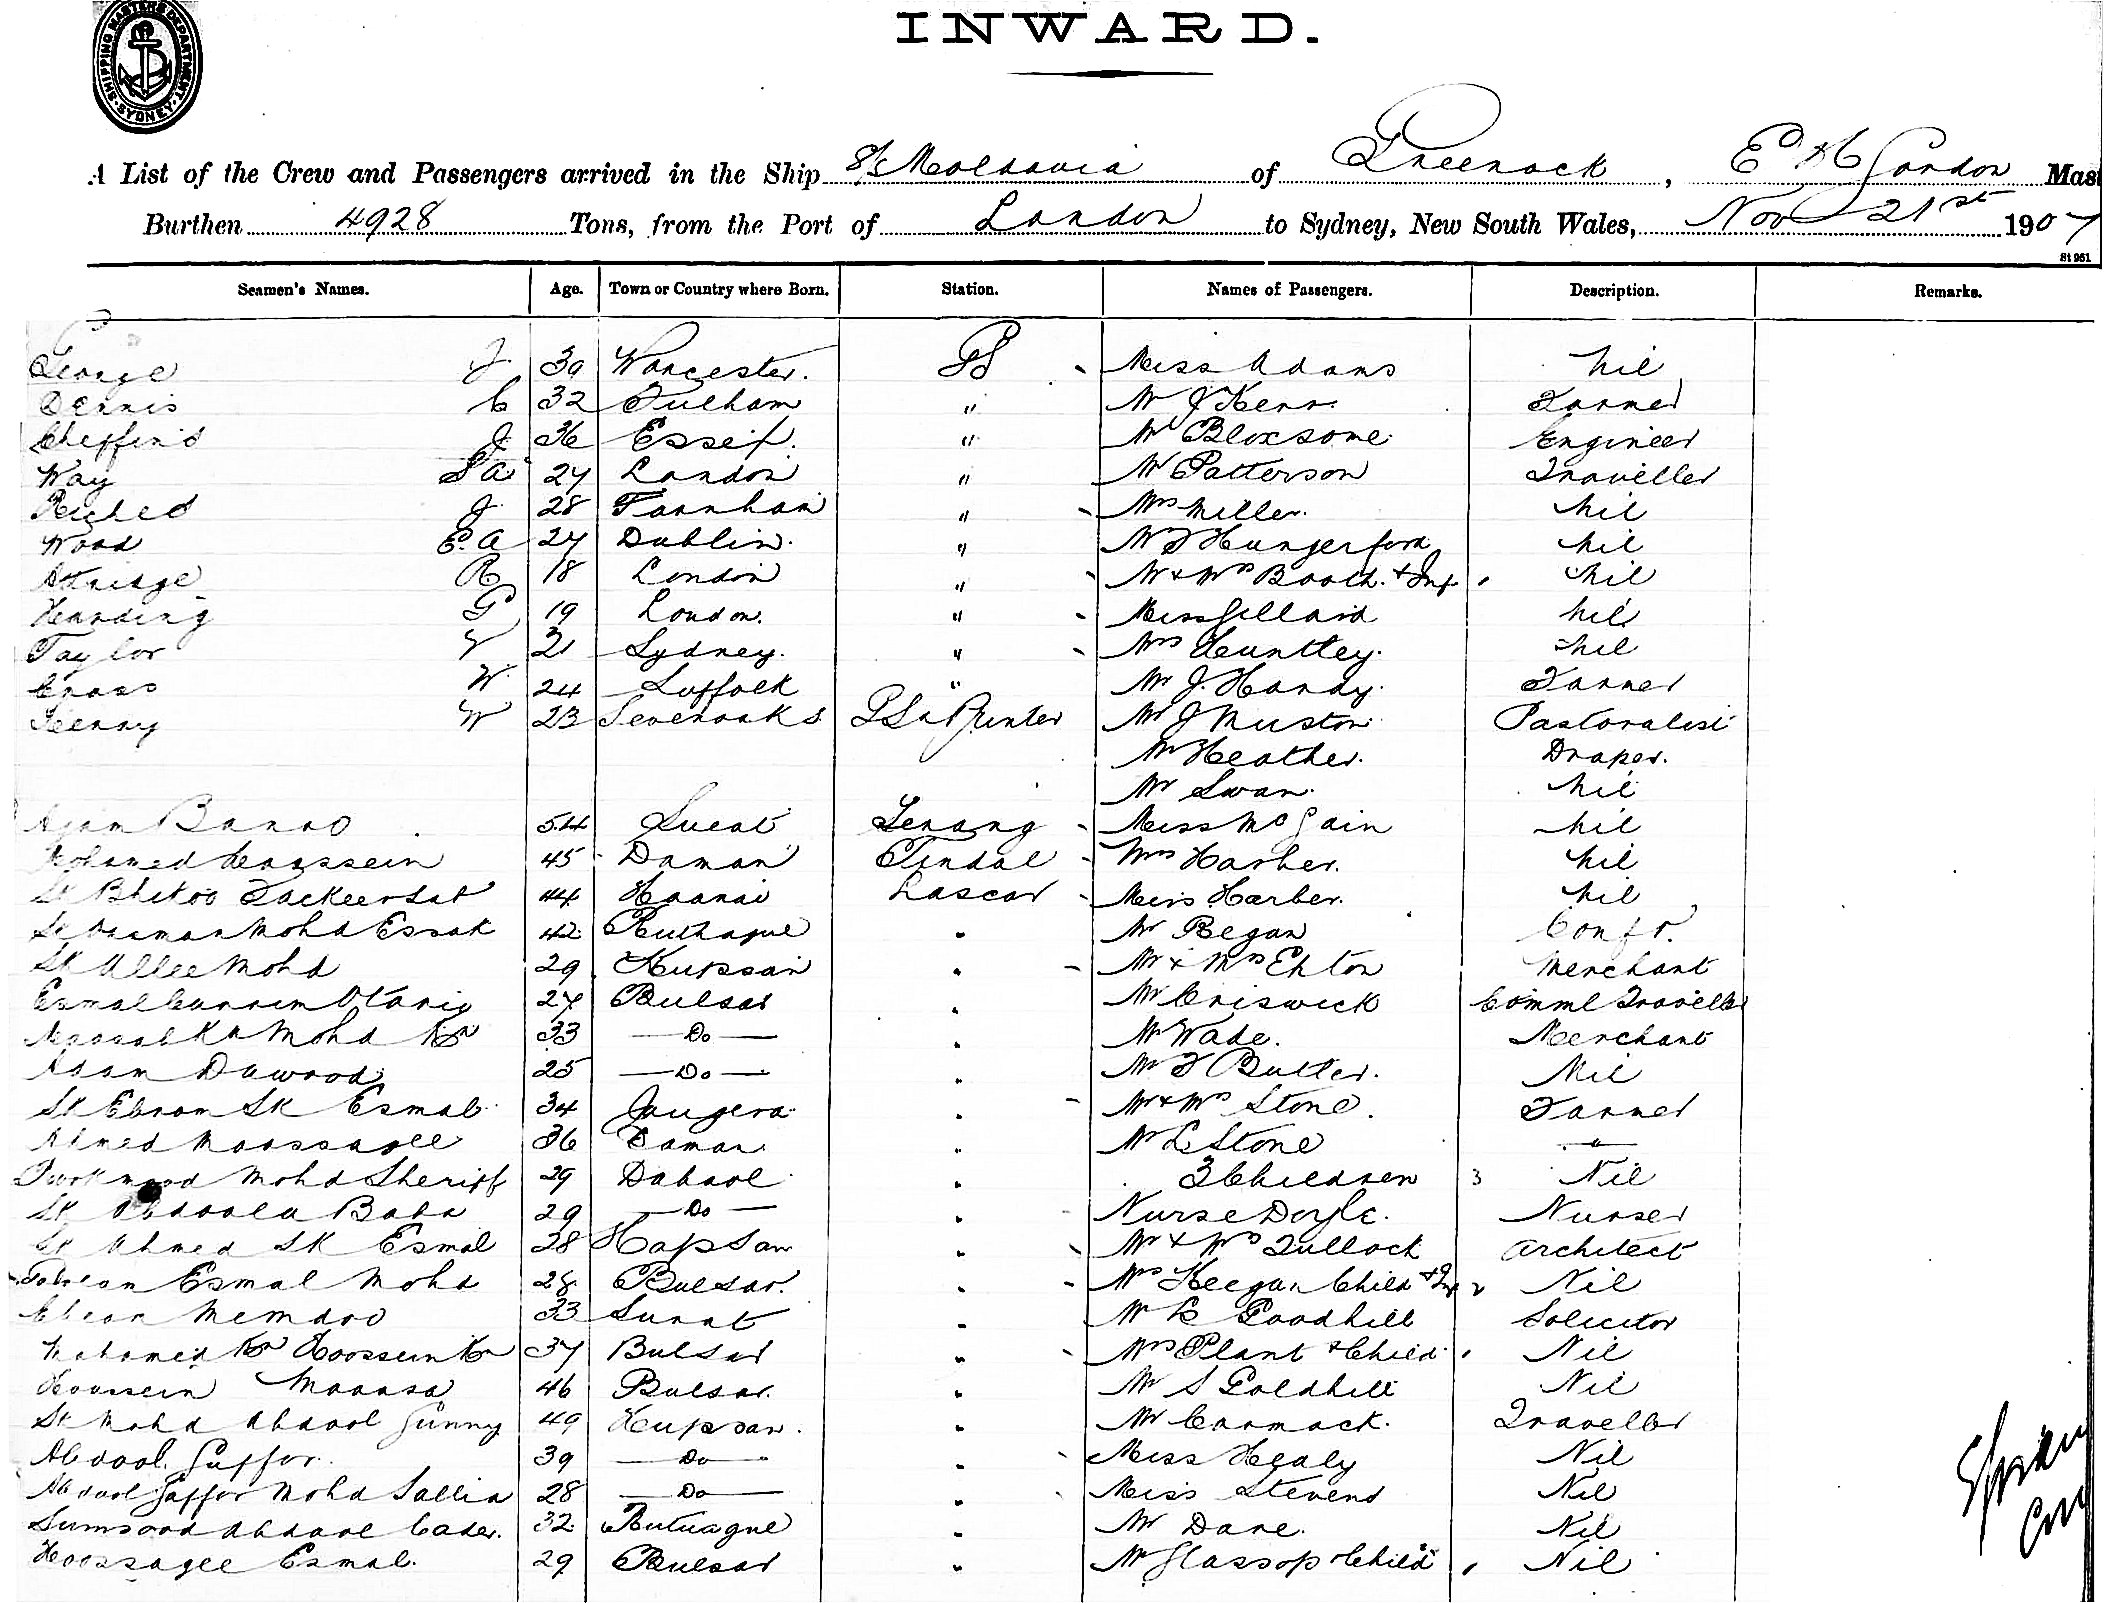 SHIPPING MASTER'S DEPARTMENT SYDNEY
INWARD.
A List of the Crew and Passengers arrived in the Ship S/S Moldavia of Greenock, E H Gordon Mas
Burthen 4928 Tons, from the Port of London to Sydney, New South Wales, Nov 21st 1907
St 951
Seamen's Names. Age. Town or Country where Born. Station. Names of Passengers. Description. Remarks.
George J 39 Worcester. Miss Adams Nil
Dennis C 32 Fulham " Mr J Kerr. Farmer
Cheffins J 36 Essex. " Mr Bloxsome Engineer
Way S A 27 London " Mr Patterson Traveller
J 28 Farnham " Mrs Miller. Nil
Wood E. A 27 Dublin. " Mr Hungerford Nil
Attridge R 18 London " Mr & Mrs Booth. & Inf Nil
Harding G 19 London. " Miss Gillard Nil
Taylor 21 Sydney. " Mrs Huntley. Nil
Cross W 24 Suffolk " Mr J. Hardy. Farmer
Feenny W 23 Sevenoaks Mr J Muston Pastoralist
Mr Heather. Draper.
Mr Swan. Nil
54 Surat Serang Miss McGain Nil
Mohamed Hoossein 45 Daman Tindal Mrs Harber. Nil
Sk Bhikoo 44 Lascar Miss Harber. Nil
Mohd Essak 42 " Mr Regan
Sk Allee Mohd 29 Hupsan " Mr & Mrs Merchant
Esmal 27 Bulsar " Mr Criswick Comml Traveller
Mohd 33 Do " Mr Wade. Merchant
Adam Dawood 25 Do " Mr F Butler. Nil
Sk Ebram Sk Esmal. 34 " Mr & Mrs Stone. Farmer
Ahmed Moossagee 36 Daman " Mr L Stone "
Mohd Sheriff 29 Dabool " 3 Children 3 Nil
Sk Abdoola Baba 29 Do " Nurse Doyle. Nurse
Sk Ahmed Sk Esmal 28 Hapsan " Mr & Mrs Tullock Architect
Esmal Mohd 28 Bulsar. " Mrs Keegan Child & Inf 2 Nil
Ebram Memdoo 33 Surat " Mr Goodhill Solicitor
Mahomed Hoossein 37 Bulsar " Mrs Plant & Child Nil
Hoossein Moossa 46 Bulsar. " Mr S Goldhill Nil
Sk Mohd Abdool Gunny 49 Hupsan. " Mr Cormack. Traveller
Abdool Guffor. 39 Do " Miss Healy Nil
Abdool Gaffor Mohd Sallia 28 Do " Miss Stevens Nil
Sumsood Abdool Cader. 32 " Mr Dane. Nil
Hoossagee Esmal. 29 Bulsar " Mr Glassop & Child Nil